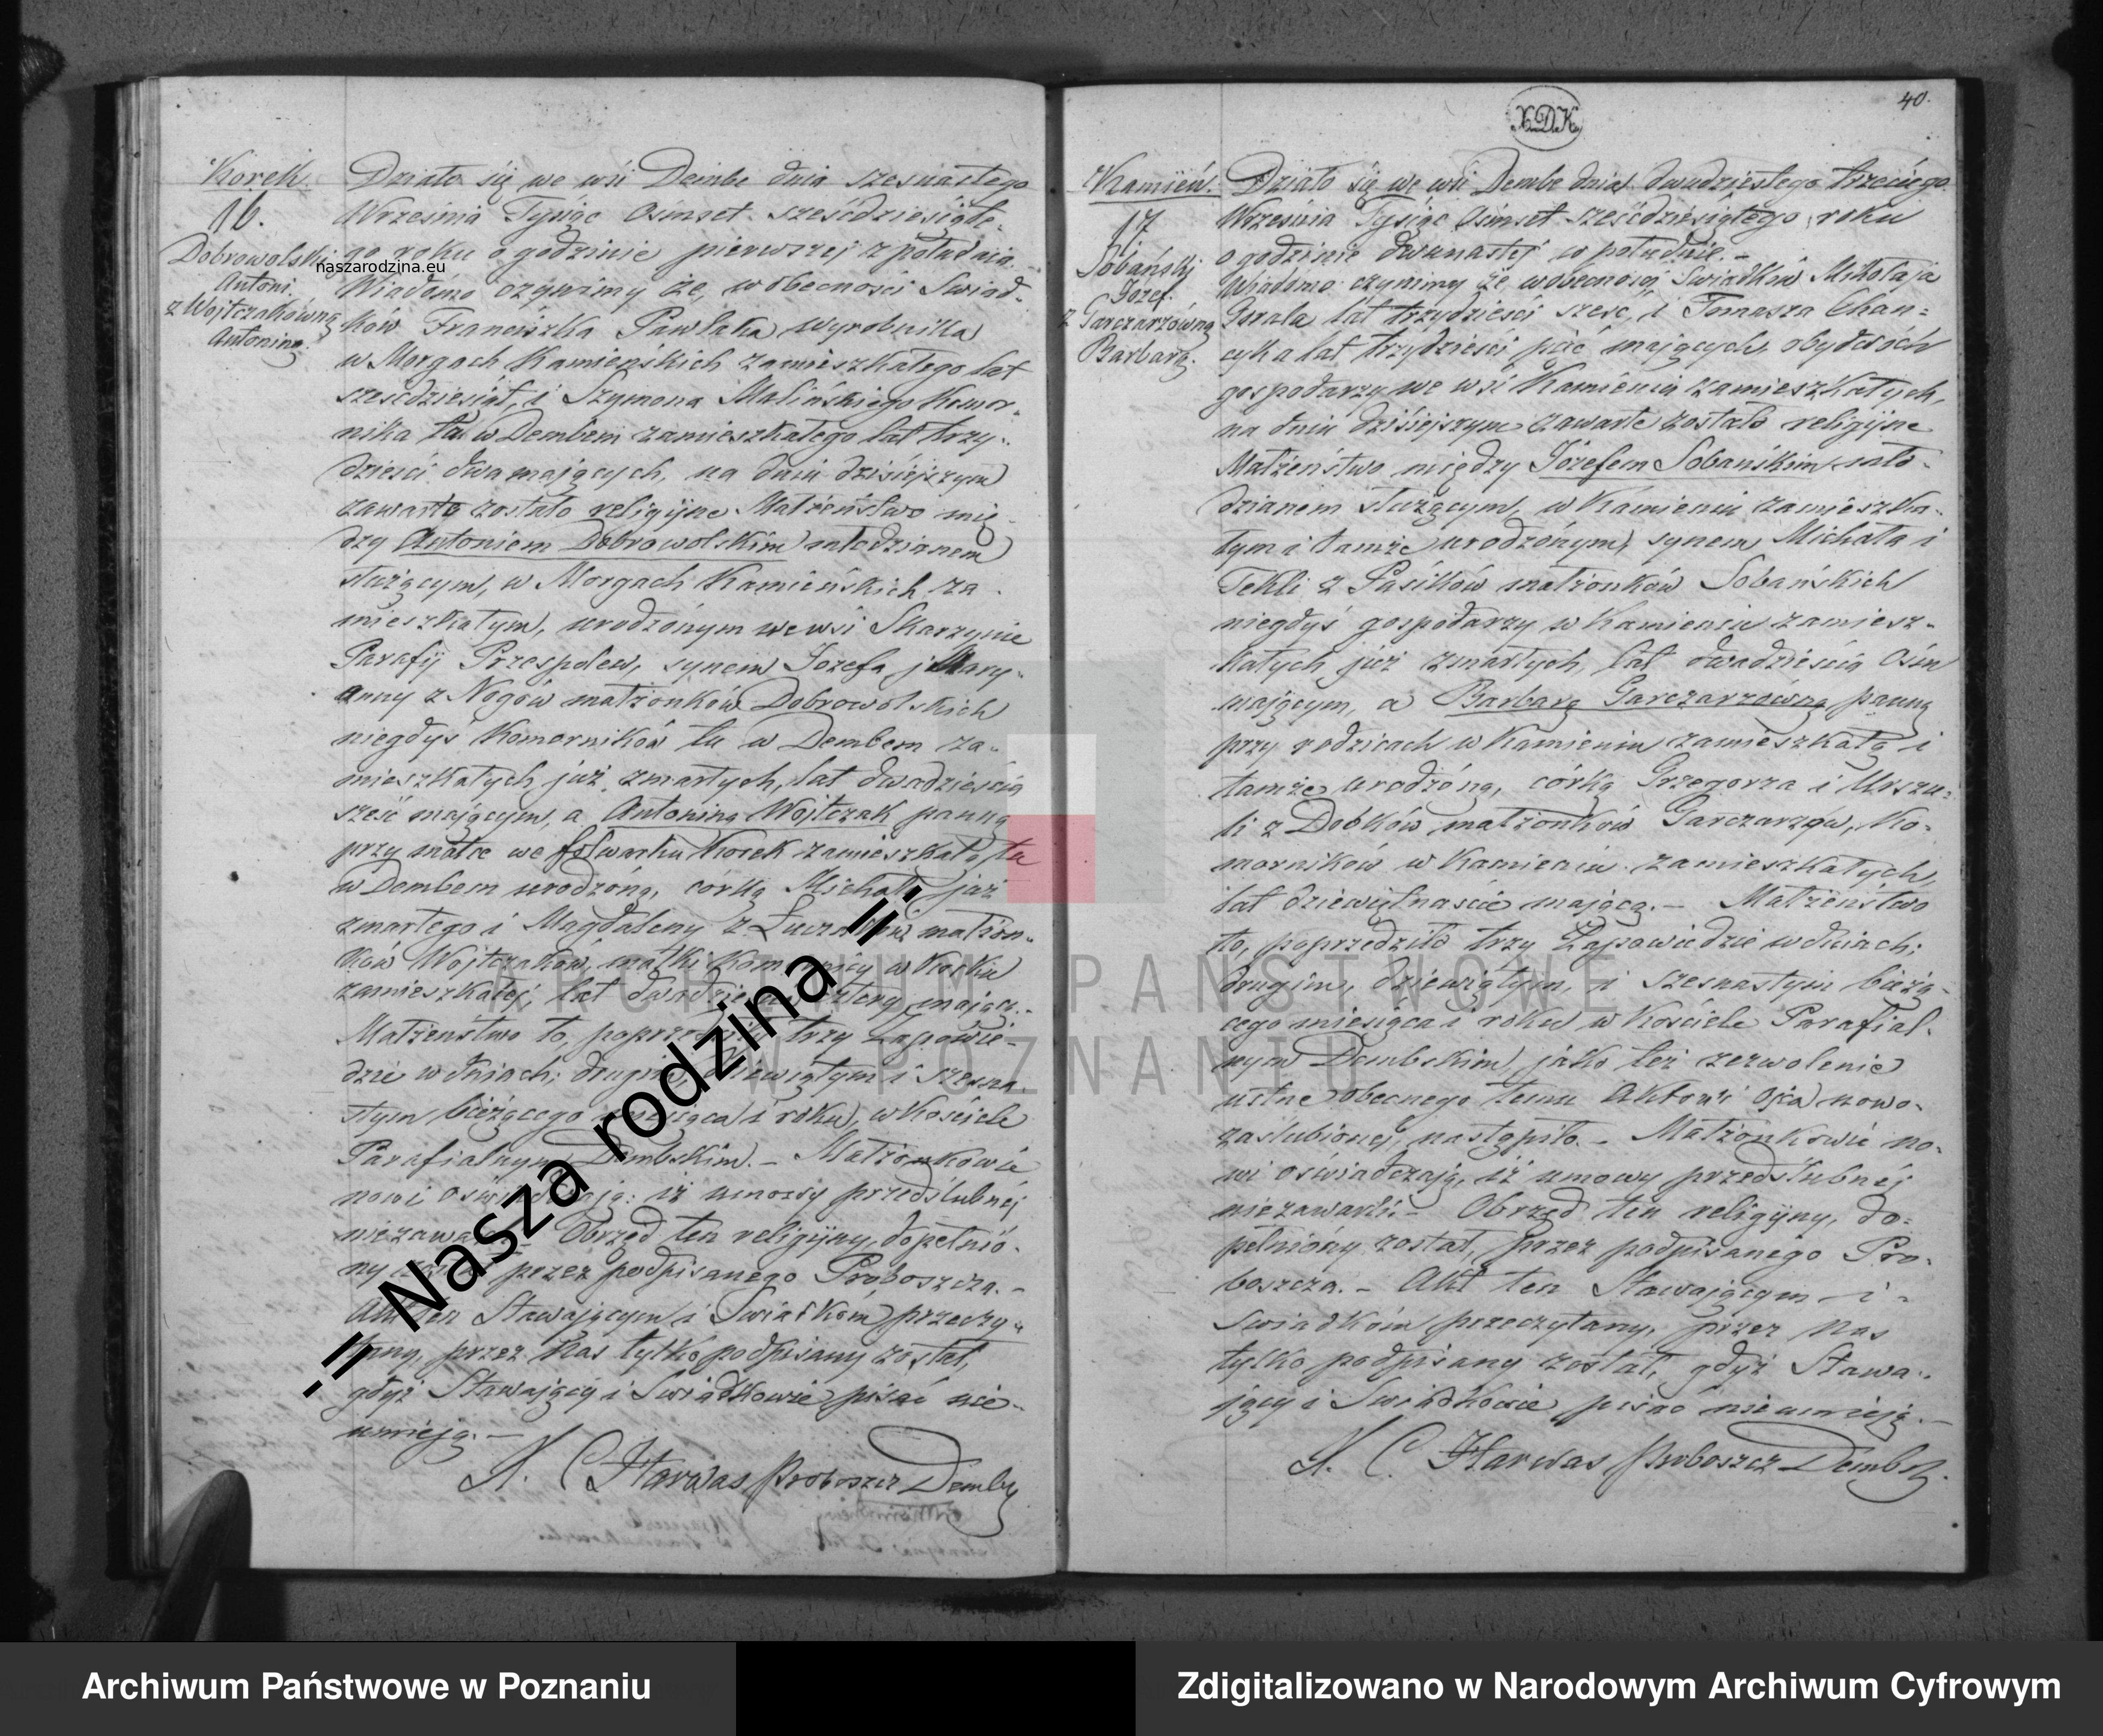 Korek.
16.
Dobrowolski
Antoni
z Wojtczakówną
Antoniną.
Działo się we wsi Dembe dnia szesnastego
Września Tysiąc Ośmset sześćdziesiąte-
go roku o godzinie pierwszej z południa.
Wiadomo czynimy że, w obecności Świad-
ków Franciszka Pawlaka wyrobnika
w Morgach Kamieńskich zamieszkałego lat
sześćdziesiąt, i Szymona Malińskiego Komor-
nika tu w Dembem zamieszkałego lat trzy-
dzieści dwa mających, na dniu dzisiejszym
zawarte zostało religijne Małżeństwo mię-
dzy Antoniem Dobrowolskim młodzianem
służącym, w Morgach Kamieńskich za-
mieszkałym, urodzonym we wsi Skarzynie
Parafij Przespolew, synem Józefa j Mary-
anny z Nogów małżonków Dobrowolskich
niegdyś Komorników tu w Dembem za-
mieszkałych już zmarłych, lat dwadzieścia
sześć mającym, a Antoniną Wojtczak panną
przy matce we folwarku Korek zamieszkałą tu
w Dembem urodzoną, córką Michała już
zmarłego i Magdaleny z małżon-
ków Wojtczaków, matki w Korku
zamieszkałej, lat cztery mającą.-
Małżeństwo to, trzy Zapowie-
dzie w dniach; drugim, dziewiątym i szesna-
stym bieżącego miesiąca i roku, w Kościele
Parafialnym Dembskim.- Małżonkowie
nowi oświadczają: iż umowy przedślubnej
niezawarli.- Obrzęd ten religijny, dopełnio-
ny został przez podpisanego Proboszcza.-
Akt ten Stawającym i Świadkom przeczy-
tany, przez Nas tylko podpisany został,
gdyż Stawający i Świadkowie pisać nie-
umieją.-
X. C. Harwas Proboszcz Demby
naszarodzina.eu
-= Nasza rodzina =-
40.
X.D.K.
Kamień.
17
Sobański
Józef.
z Garczarzówną
Barbarą.
Działo się we wsi Dembe dnia dwudziestego trzeciego
Września Tysiąc Ośmset sześćdziesiątego roku
o godzinie dwunastej w południe.-
Wiadomo czynimy że w obecności Świadków Mikołaja
Gorala lat trzydzieści sześć, i Tomasza Chan-
cyka lat trzydzieści pięć mających, obydwóch
gospodarzy we wsi Kamieniu zamieszkałych,
na dniu dzisiejszym zawarte zostało religijne
Małżeństwo między Józefem Sobańskim mło-
dzianem służącym, w Kamieniu zamieszka-
łym i tamże urodzonym, synem Michała i
Tekli z Pasików małżonków Sobańskich
niegdyś gospodarzy w Kamieniu zamiesz-
kałych już zmarłych, lat dwadzieścia ośm
mającym, a Barbarą Garczarzówną panną
przy rodzicach w Kamieniu zamieszkałą i
tamże urodzoną, córką Grzegorza i Urszu-
li z Dobków małżonków Garczarzów, Ko-
morników w Kamieniu zamieszkałych,
lat dziewiętnaście mającą.- Małżeństwo
to, poprzedziło trzy Zapowiedzie w dniach;
drugim, dziewiątym, i szesnastym bieżą-
cego miesiąca i roku w Kościele Parafial-
nym Dembskim, jako też zezwolenie
ustne obecnego temu Aktowi Ojca nowo-
zaślubionej, nastąpiło.- Małżonkowie no-
wi oświadczają, iż umowy przedślubnej
niezawarli.- Obrzęd ten religijny, do-
pełniony został, przez podpisanego Pro-
boszcza.- Akt ten Stawającym i
Świadkom przeczytany, przez Nas
tylko podpisany został, gdyż Stawa-
jący i Świadkowie pisać nieumieją.-
X. C. Harwas Proboszcz Demby.
ARCHIWUM PAŃSTWOWE
W POZNANIU
Archiwum Państwowe w Poznaniu
Zdigitalizowano w Narodowym Archiwum Cyfrowym